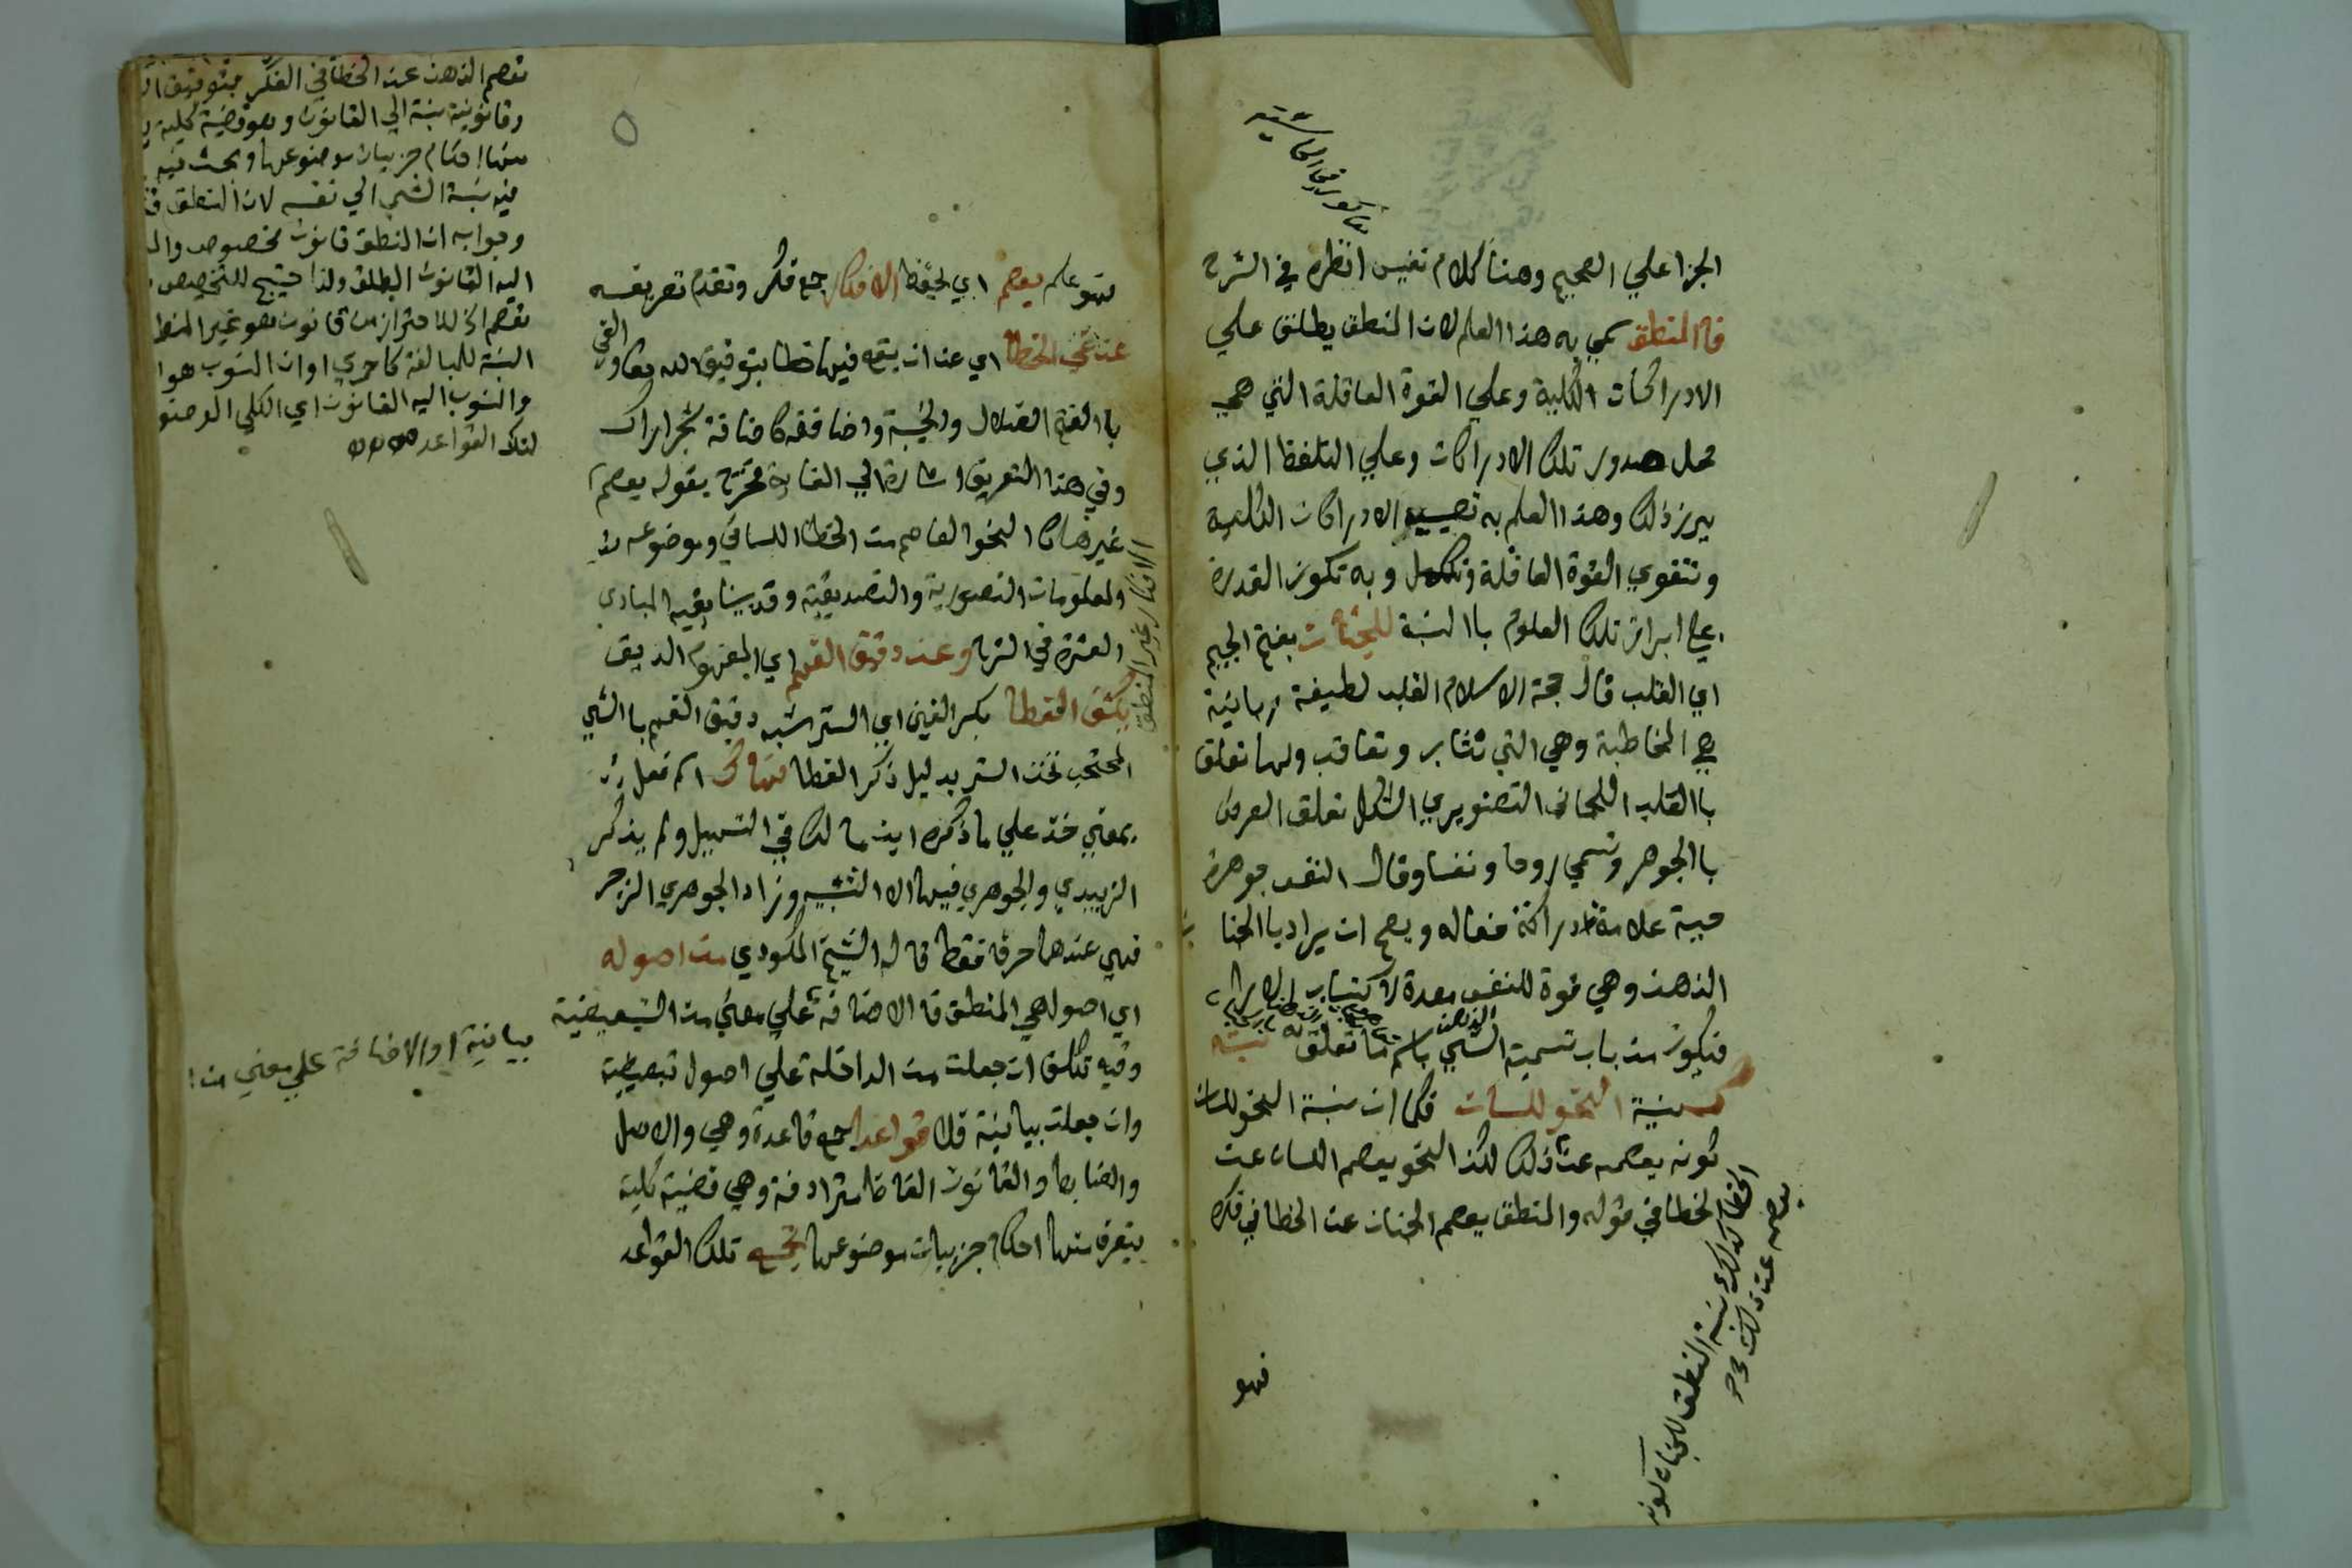 الجزا علي الصحيح وهنا كلام نفيس انظره في الشرح
فالمنطق سمي به هذا العلم لان المنطق يطلق علي
الادراكات الكلية وعلي القوة العاقلة التي هي
محل صدور تلك الادراكات وعلي التلفظ الذي
يبرز ذلك وهذا العلم به تصيب الادراكات الكلية
وتتقوي القوة العاقلة وتكمل وبه تكون القدرة
علي ابراز تلك العلوم باالنسبة للجنان بفتح الجيم
اي القلب قال حجة الاسلام القلب لطيفة ربانية
هي المخاطبة وهي التي تثاب وتعاقب ولها تعلق
باالقلب اللحماني الصنوبري الشكل تعلق العرض
باالجوهر وتسمي روحا ونفسا وقال النفس جوهرة
حية علامة دراكة فعاله ويصح ان يراد باالجنا
الذهن وهي قوة للنفس معدة لاكتساب الاراء
فيكون من باب تسمية الشي باسم ما تعلق به نسبته
كنسبة النحو للسان فكما ان نسبة النحو للسان
كونه يعصمه عن ذلك لكن النحو يعصم اللسان عن
الخطا في قوله والمنطق يعصم الجنان عن الخطا في فكره
الخطا كذلك نسبة المنطق للجنان كونه
يعصمه عن ذلك صح
فهو
فهو علم يعصم اي يحفظ الافكار جمع فكر وتقدم تعريفه
عن غي الخطا اي عن ان يقع فيها خطا بتوفيق الله تعالي والغي
باالفتح الضلال والخيبة واضافته كاضافة شجر اراك
وفي هذا التعريف اشارة الي الغاية مخرج بقوله يعصم
الافكار غير المنطق
غيرها كا النحو العاصم من الخطا اللساني وموضوعه
المعلومات التصورية والتصديقية وقد بينا بقية المبادي
العشرة في الشرح وعن دقيق الفهم اي المفهوم الدقيق
يكشف الغطا بكسر الغين اي الستر شبه دقيق الفهم باالشي
المحتجب تحت الستر بدليل ذكر الغطا فهاك اسم فعل
بمعني خذ علي ما ذكره ابن مالك في التسهيل ولم يذكر
الزبيدي والجوهري فيها الا التنبيه وزاد الجوهري الزجر
فهي عندهما حرف فقط قاله الشيخ المكودي من اصوله
اي اصول هي المنطق فا الاضافة علي معني من التبعيضية
بيانية او الاضافة علي معني من
وفيه تكلف ان جعلت من الداخلة علي اصول تبعيضية
وان جعلت بيانية فلا قواعدا جمع قاعدة وهي والاصل
والضابط والقانون الفاظ مترادفة وهي قضية كلية
يتعرف منها احكام جزييات موضوعها تجمع تلك القواعد
تعصم الذهن عن الخطا في الفكر بتوفيق
وقانونية نسبة الي القانون وهو قضية كلية
منها احكام جزييات موضوعها وبحث فيه
فيه نسبة الشي الي نفسه لان المنطق
وجوابه ان المنطق قانون مخصوص
اليه القانون المطلق ولذا احتيج للتخصيص
تعصم الخ للاحتراز من قانون هو غير المنطق
النسبة للمبالغة كاحمري او ان المنسوب هو
والمنسوب اليه القانون اي الكلي
لتلك القواعد